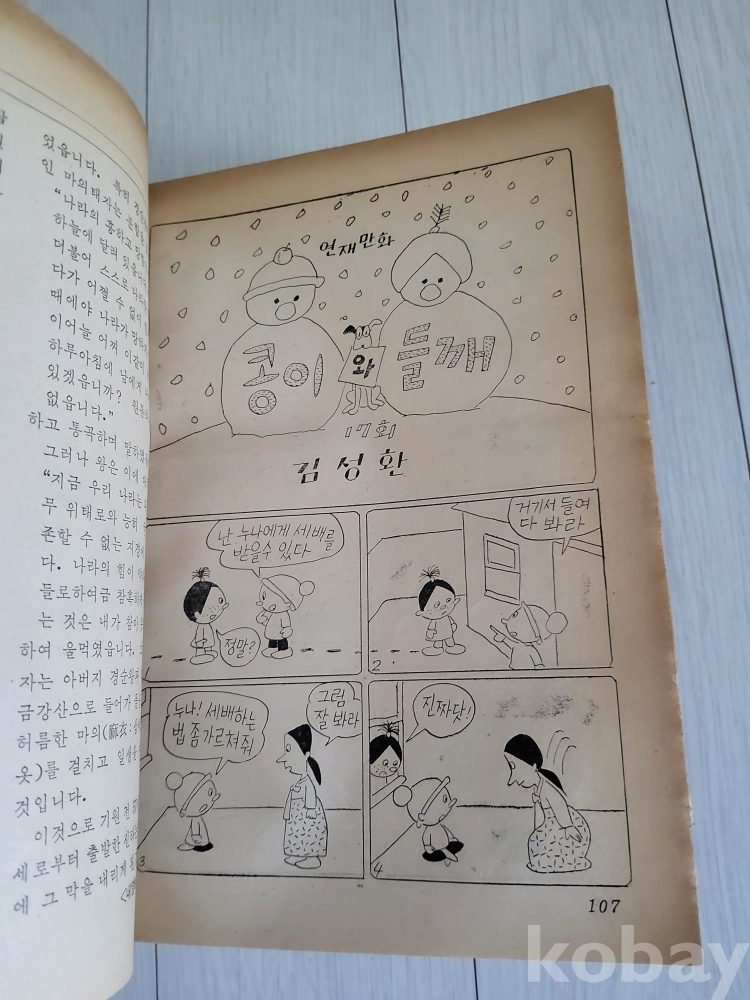 었읍니다. 특히
인 마의태자는
“나라의 흥하고
하늘에 달려
더불어 스스로
다가 어쩔 수 없이
때에야 나라가
이어늘 어찌 이같이
하루아침에 남에게
있겠읍니까?
없읍니다.”
하고 통곡하며
그러나 왕은 이에
“지금 우리 나라는
무 위태로와 능히
존할 수 없는 지경에
다. 나라의 힘이
들로하여금
는 것은 내가
하여 울먹였읍니다.
자는 아버지
금강산으로 들어가
허름한 마의(麻衣:
옷)를 걸치고 일생을
것입니다.
이것으로 기원 전
세로부터 출발한
에 그 막을 내리게
연재만화
콩이와 들깨
17회
김성환
난 누나에게 세배를
받을수 있다
정말?
거기서 들여
다 봐라
2
누나! 세배하는
법 좀 가르쳐줘
그럼
잘 봐라
3
진짜닷!
4
107
kobay